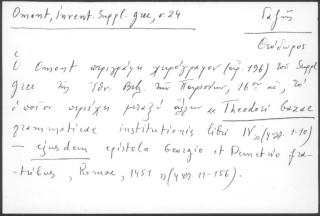 Omont, invent. Suppl. grec, σ. 24
Γαζῆς
Θεόδωρος
Ὁ Omont περιγράφει χειρόγραφον (ἀρ. 196) τοῦ Suppl.
grec τῆς Ἐθν. Βιβ. τῶν Παρισίων, 16ου αἰ, τὸ
ὁποῖον περιέχει μεταξὺ ἄλλων «Theodori Gazae
grammaticae institutionis libri IV» (φφ. 1-10)
– ejusdem epistola Georgio et Demetrio fra-
tribus, Romae, 1451 » (φφ. 11-156).